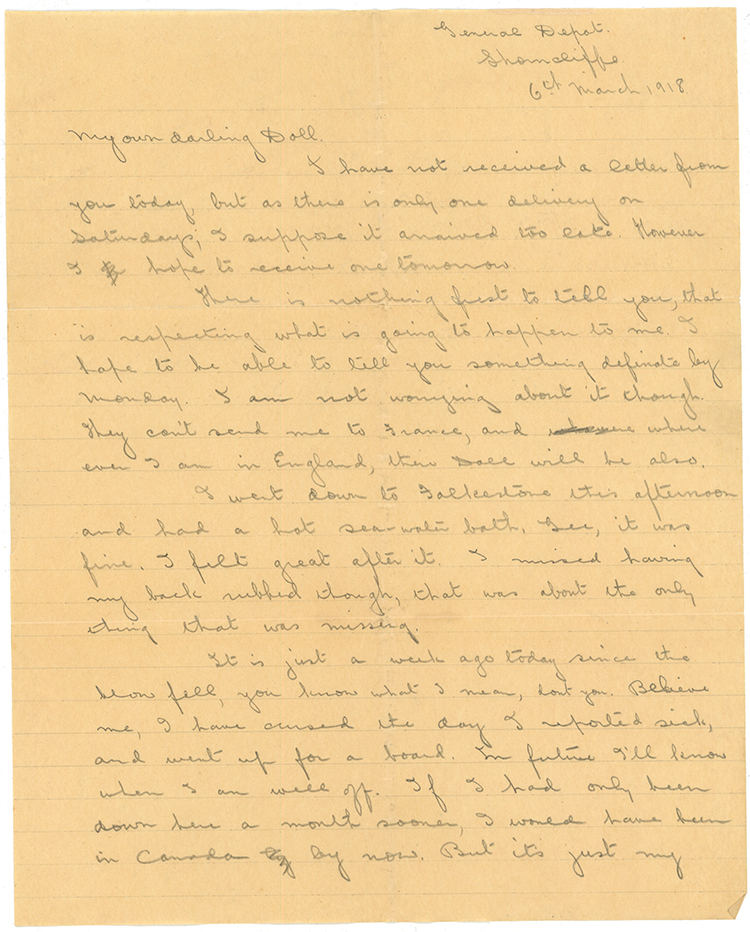 General Depot.
Shorncliffe
6th March 1918.
My own darling Doll.
I have not received a letter from
you today, but as there is only one delivery on
Saturdays, I suppose it arraived too late. However
I hope to receive one tomorrow.
There is nothing frest to tell you, that
is respecting what is going to happen to me. I
hope to be able to tell you something definate by
Monday. I am not worrying about it though.
They can't send me to France, and where
ever I am in England, there Doll will be also.
I went down to Folkestone this afternoon
and had a hot sea-water bath, Gee, it was
fine. I felt great after it. I missed having
my back rubbed though, that was about the only
thing that was missing.
It is just a week ago today since the
blow fell, you know what I mean, dont you. Believe
me, I have cursed the day I reported sick,
and went up for a board. In future I'll know
when I am well off. If I had only been
down here a month sooner, I would have been
in Canada by now. But it's just my